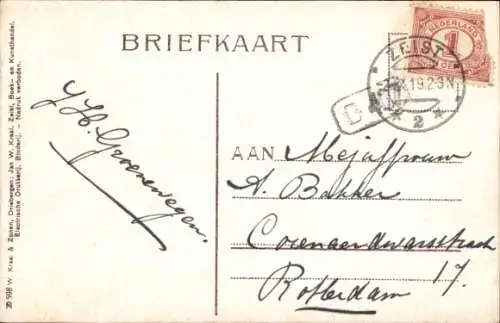 BRIEFKAART
NEDERLAND
1
CENT
ZEIST
19.2-3N
* 2 *
J.H. Groenewegen.
AAN Mejuffrouw
A. Bakker
Rotterdam 17.
20 598 W. Kraal & Zonen, Driebergen: Jan W. Kraal, Zeist, Boek- en Kunsthandel.
Electrische Drukkerij. Binderij. - Nadruk verboden.